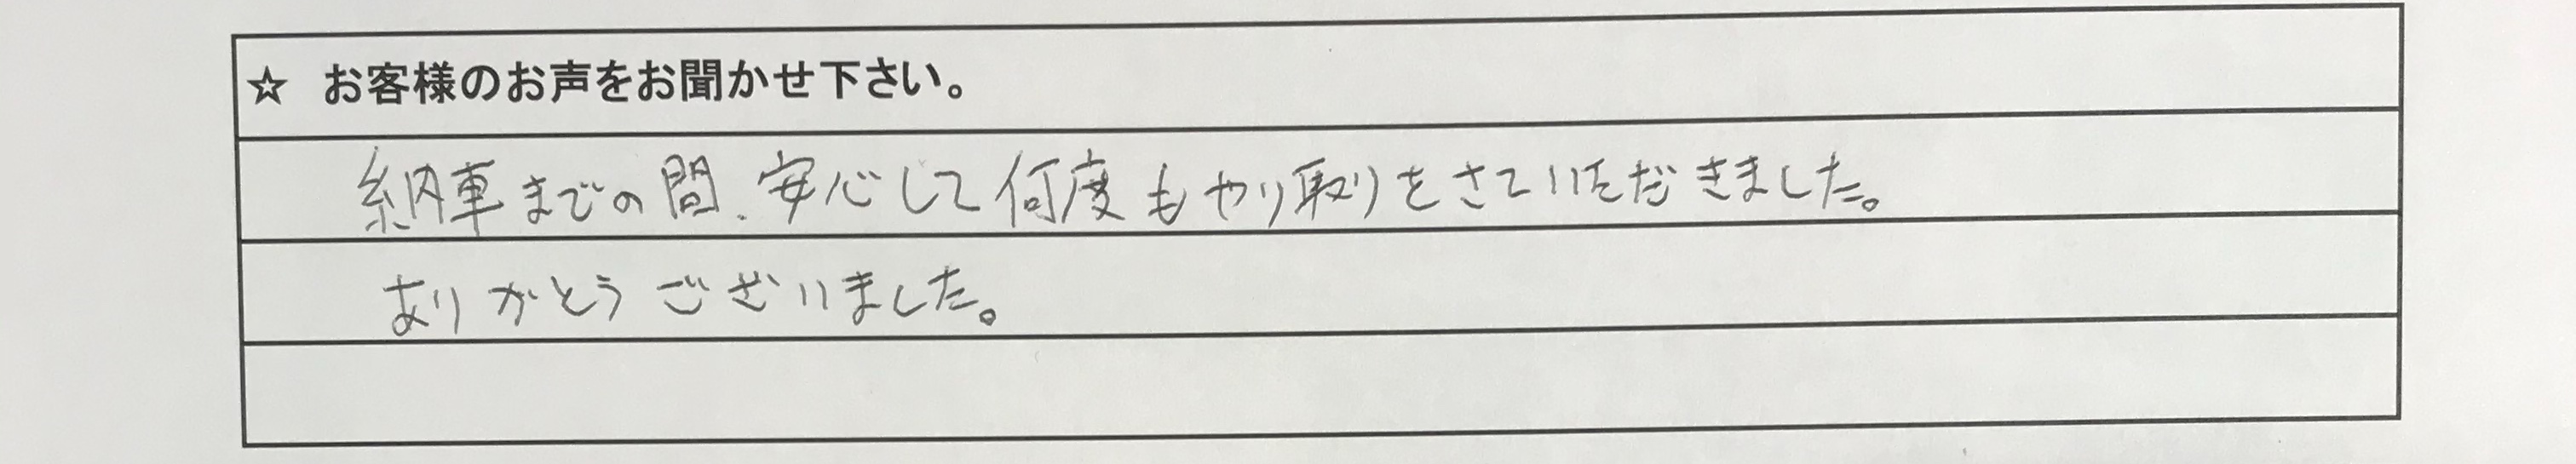 ☆ お客様のお声をお聞かせ下さい。
納車までの間、安心して何度もやり取りをさていただきました。
ありがとうございました。